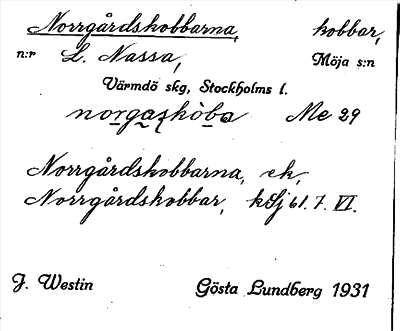 Norrgårdskobbarna, kobbar,
n:r L. Nassa, Möja s:n
Värmdö skg, Stockholms l.
norgaskòba Me 29
Norrgårdskobbarna, ek,
Norrgårdskobbar, kSj 61.7. VI.
J. Westin Gösta Lundberg 1931